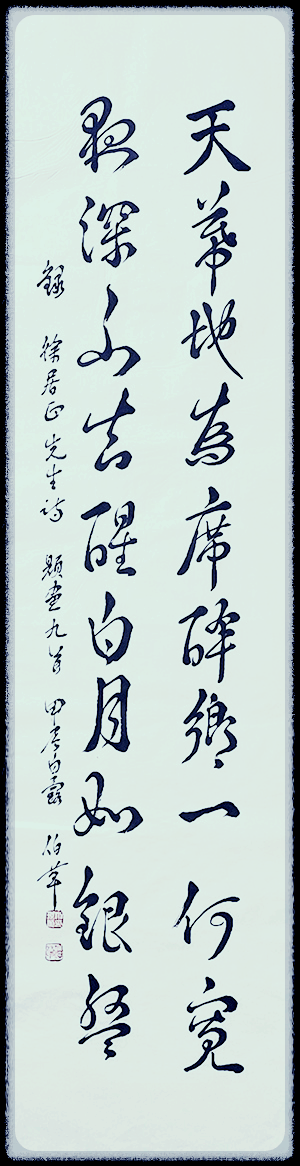 天幕地為席醉鄉一何寬
夜深不醒白月如銀盤
錄 徐居正先生詩 題畫九首 甲辰白露 伯